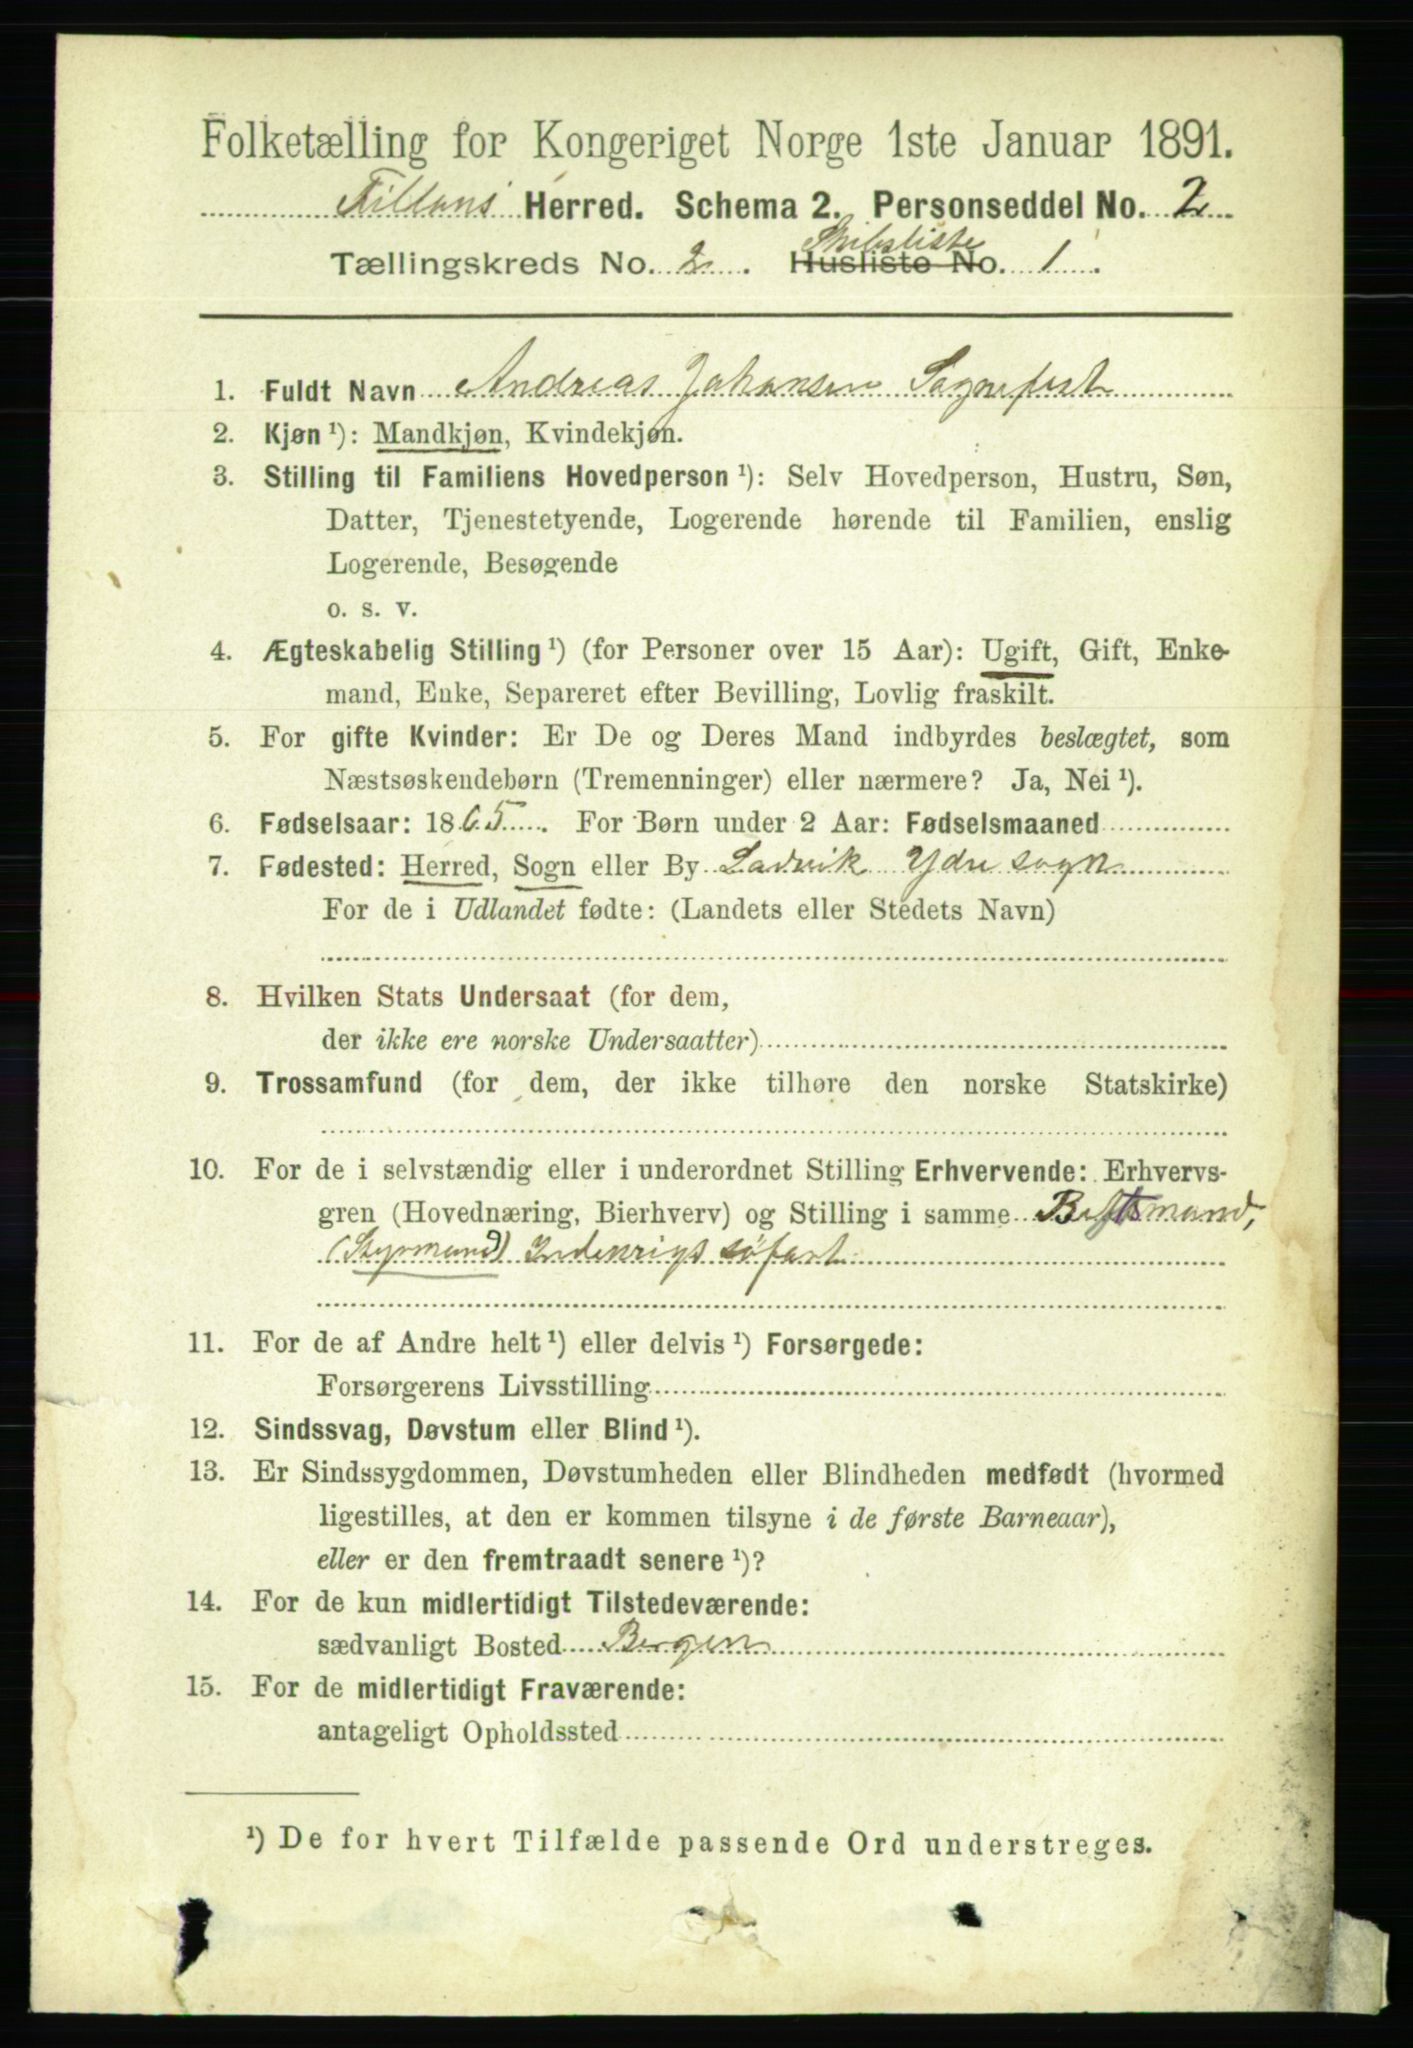 Folketælling for Kongeriget Norge 1ste Januar 1891.
Fillans Herred. Schema 2. Personseddel No. 2
Skibsliste
Tællingskreds No. 2. Husliste No. 1.
1. Fuldt Navn Andreas Johansen Sognefest
2. Kjøn ¹): Mandkjøn, Kvindekjøn.
3. Stilling til Familiens Hovedperson ¹): Selv Hovedperson, Hustru, Søn,
Datter, Tjenestetyende, Logerende hørende til Familien, enslig
Logerende, Besøgende
o. s. v.
4. Ægteskabelig Stilling ¹) (for Personer over 15 Aar): Ugift, Gift, Enke-
mand, Enke, Separeret efter Bevilling, Lovlig fraskilt.
5. For gifte Kvinder: Er De og Deres Mand indbyrdes beslægtet, som
Næstsøskendebørn (Tremenninger) eller nærmere? Ja, Nei ¹).
6. Fødselsaar: 1865. For Børn under 2 Aar: Fødselsmaaned
7. Fødested: Herred, Sogn eller By Ladvik Ydre sogn
For de i Udlandet fødte: (Landets eller Stedets Navn)
8. Hvilken Stats Undersaat (for dem,
der ikke ere norske Undersaatter)
9. Trossamfund (for dem, der ikke tilhøre den norske Statskirke)
10. For de i selvstændig eller i underordnet Stilling Erhvervende: Erhvervs-
gren (Hovednæring, Bierhverv) og Stilling i samme Bestmand,
(Styrmand) Indenrigs søfart
11. For de af Andre helt ¹) eller delvis ¹) Forsørgede:
Forsørgerens Livsstilling
12. Sindssvag, Døvstum eller Blind ¹).
13. Er Sindssygdommen, Døvstumheden eller Blindheden medfødt (hvormed
ligestilles, at den er kommen tilsyne i de første Barneaar),
eller er den fremtraadt senere ¹)?
14. For de kun midlertidigt Tilstedeværende:
sædvanligt Bosted Bergen
15. For de midlertidigt Fraværende:
antageligt Opholdssted
¹) De for hvert Tilfælde passende Ord understreges.